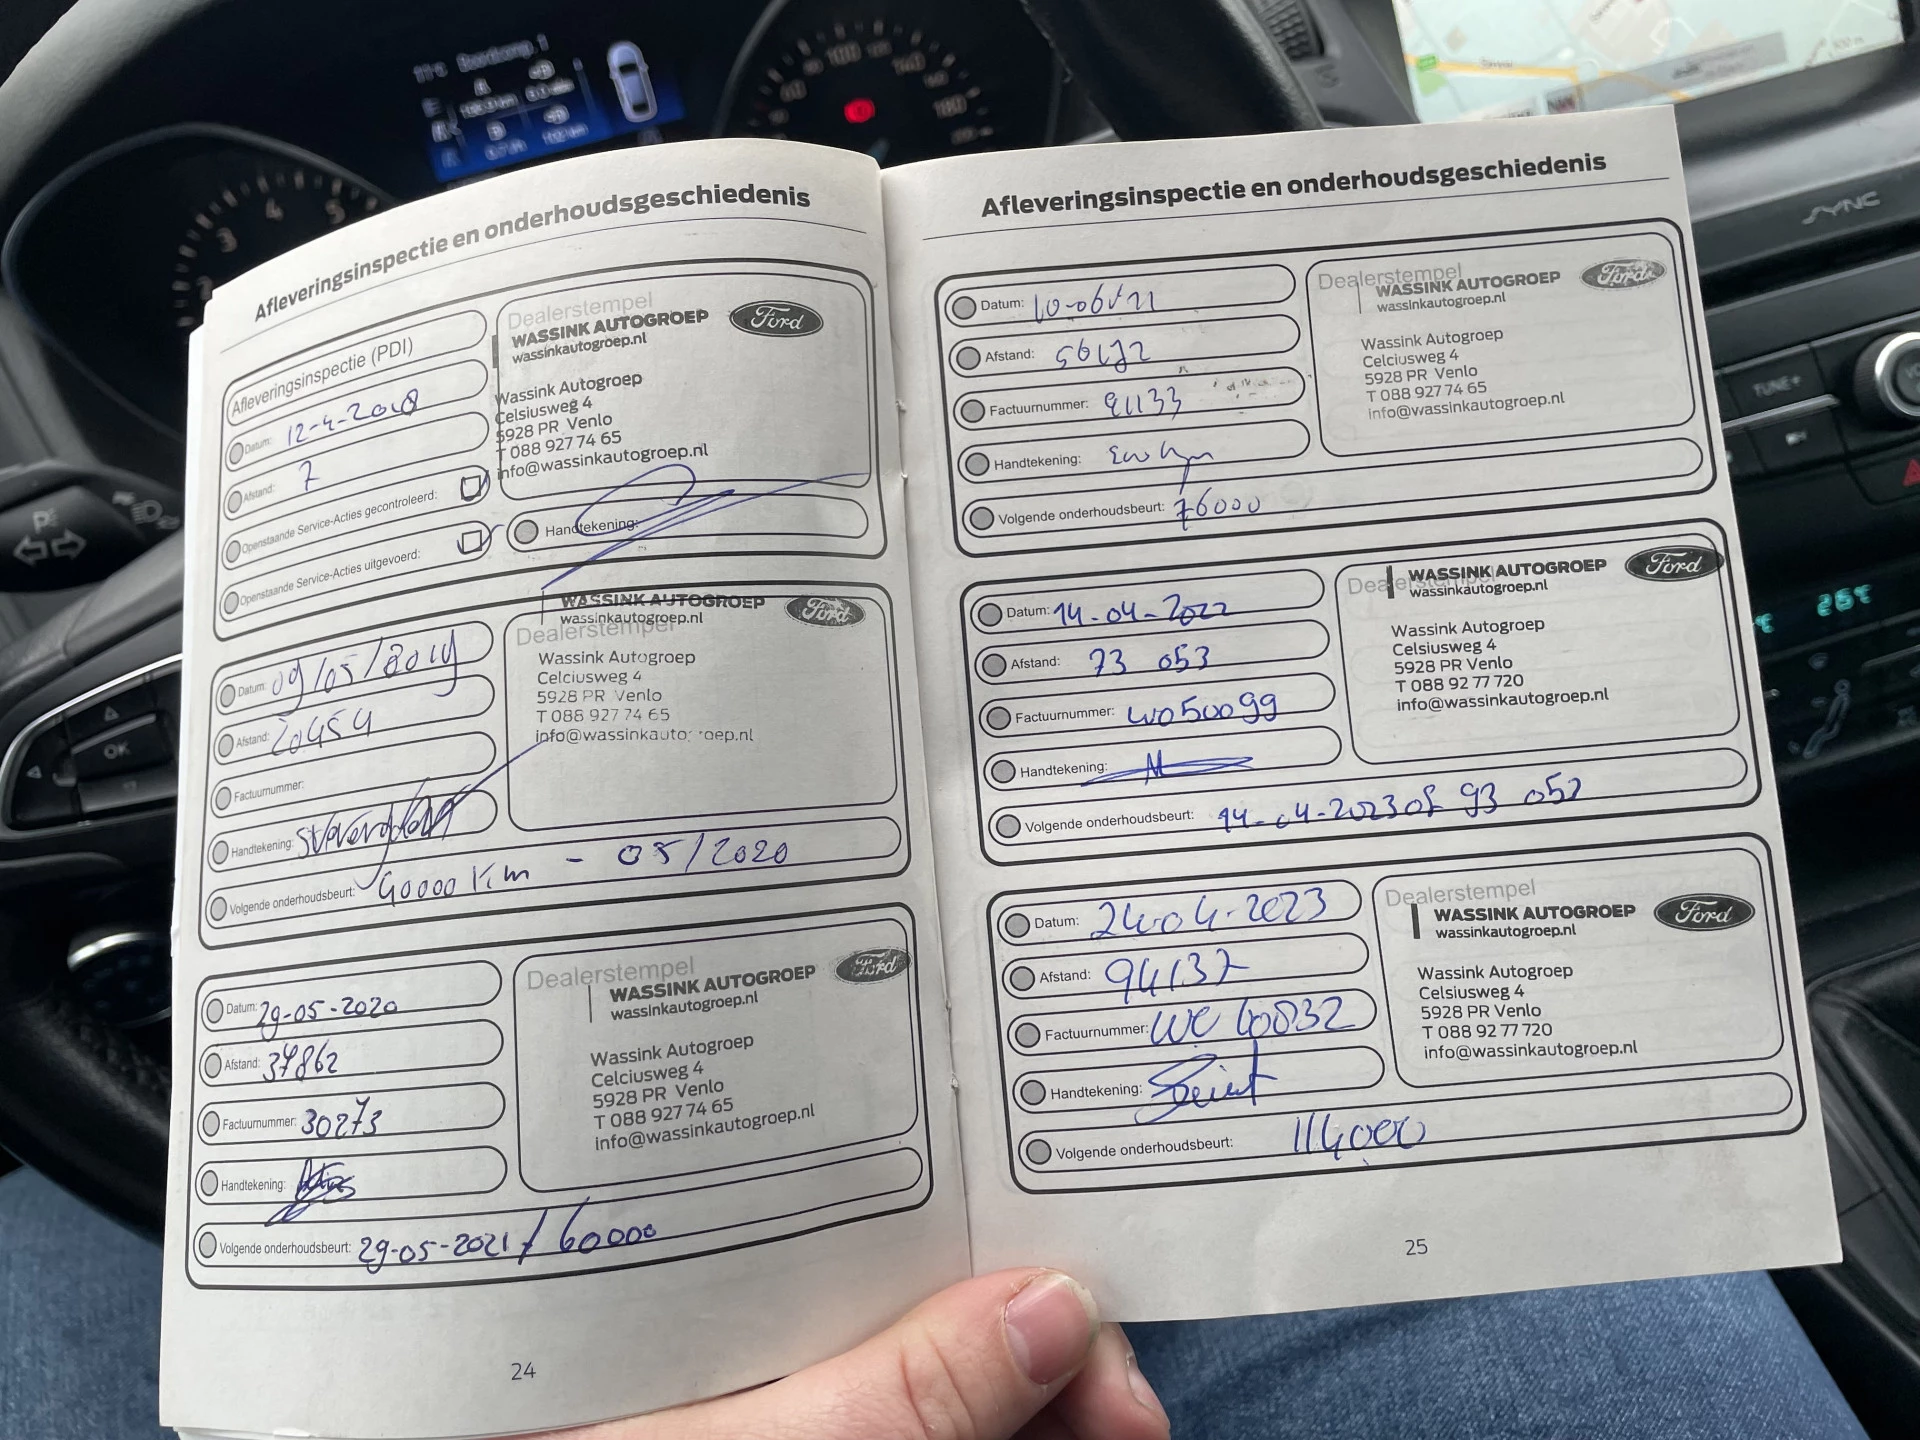 Afleveringsinspectie en onderhoudsgeschiedenis
Afleveringsinspectie (PDI)
Datum: 12-4-2018
Afstand: 7
Openstaande Service-Acties gecontroleerd:
Openstaande Service-Acties uitgevoerd:
Dealerstempel
WASSINK AUTOGROEP
wassinkautogroep.nl
Ford
Wassink Autogroep
Celsiusweg 4
5928 PR Venlo
T 088 927 74 65
info@wassinkautogroep.nl
Handtekening:
Datum: 09/05/2019
Afstand: 20454
Factuurnummer:
Handtekening:
Volgende onderhoudsbeurt: 40000 Km - 05/2020
WASSINK AUTOGROEP
wassinkautogroep.nl
Dealerstempel
Ford
Wassink Autogroep
Celciusweg 4
5928 PR Venlo
T 088 927 74 65
info@wassinkauto oep.nl
Datum: 29-05-2020
Afstand: 37862
Factuurnummer: 30273
Handtekening:
Volgende onderhoudsbeurt: 29-05-2021 / 60000
Dealerstempel
WASSINK AUTOGROEP
wassinkautogroep.nl
Ford
Wassink Autogroep
Celciusweg 4
5928 PR Venlo
T 088 927 74 65
info@wassinkautogroep.nl
24
Afleveringsinspectie en onderhoudsgeschiedenis
Datum:
Afstand:
Factuurnummer:
Handtekening:
Volgende onderhoudsbeurt: 76000
Dealerstempel
WASSINK AUTOGROEP
wassinkautogroep.nl
Ford
Wassink Autogroep
Celciusweg 4
5928 PR Venlo
T 088 927 74 65
info@wassinkautogroep.nl
Datum: 14-04-2022
Afstand: 73 053
Factuurnummer: W050099
Handtekening:
Volgende onderhoudsbeurt: 14-04-2023 of 93 053
Dealerstempel
WASSINK AUTOGROEP
wassinkautogroep.nl
Ford
Wassink Autogroep
Celsiusweg 4
5928 PR Venlo
T 088 92 77 720
info@wassinkautogroep.nl
Datum: 24-04-2023
Afstand: 94137
Factuurnummer:
Handtekening:
Volgende onderhoudsbeurt: 114000
Dealerstempel
WASSINK AUTOGROEP
wassinkautogroep.nl
Ford
Wassink Autogroep
Celsiusweg 4
5928 PR Venlo
T 088 92 77 720
info@wassinkautogroep.nl
25
SYNC
TUNE+
OK